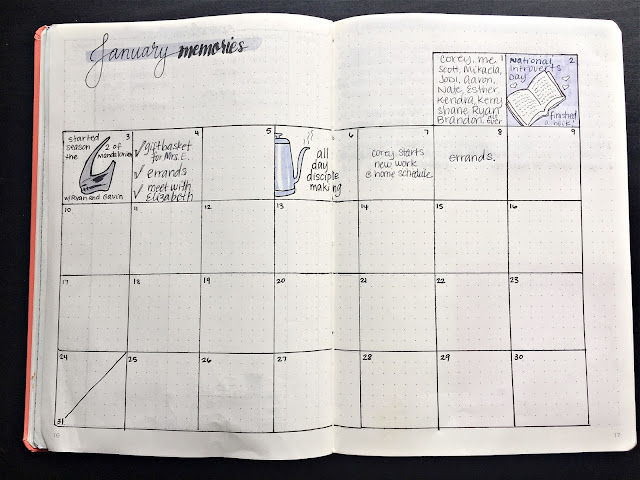 January memories
1
corey, me
Scott, Mikaela,
Jodi, Aaron,
Nate, Esther,
Kendra, Kerry
Shane Ryan
Brandon.
2
National
Introverts
Day
finished
a book!
3
started
season 2 of
the Mandalorian
w/Ryan and Gavin
4
✓ giftbasket
for Mrs. E.
✓ errands
✓ meet with
Elizabeth
5
6
all
day
disciple
making
7
corey starts
new work
@ home schedule
8
errands.
9
10
11
12
13
14
15
16
17
18
19
20
21
22
23
24
31
25
26
27
28
29
30
16
17